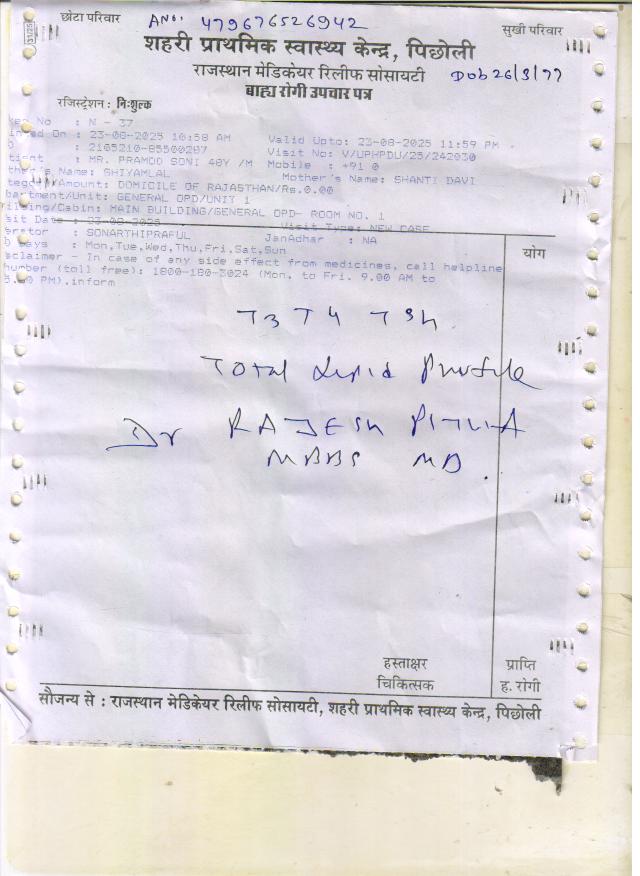 छोटा परिवार
ANO: 479676526942
सुखी परिवार
शहरी प्राथमिक स्वास्थ्य केन्द्र, पिछोली
राजस्थान मेडिकेयर रिलीफ सोसायटी DOb 26/3/77
बाह्य रोगी उपचार पत्र
रजिस्ट्रेशन : निःशुल्क
No : N - 37
On : 23-08-2025 10:58 AM Valid Upto: 23-08-2025 11:59 PM
: 2165210-85500287 Visit No: V/UPHPDU/25/242030
: MR. PRAMOD SONI 48Y /M Mobile : +91 0
Name: SHIYAMLAL Mother's Name: SHANTI DAVI
/Amount: DOMICILE OF RAJASTHAN/Rs.0.00
artment/Unit: GENERAL OPD/UNIT 1
/Cabin: MAIN BUILDING/GENERAL OPD- ROOM NO. 1
sit Date : 23-08-2025 Visit Type: NEW CASE
erator : SONARTHIPRAFUL JanAdhar : NA
ays : Mon,Tue,Wed,Thu,Fri,Sat,Sun
sclaimer - In case of any side effect from medicines, call helpline
number (toll free): 1800-180-3024 (Mon. to Fri. 9.00 AM to
PM).inform
योग
T3 T4 TSH
Total Lipid Profile
Dr RAJESH
MBBS MD.
हस्ताक्षर
चिकित्सक
प्राप्ति
ह. रोगी
सौजन्य से : राजस्थान मेडिकेयर रिलीफ सोसायटी, शहरी प्राथमिक स्वास्थ्य केन्द्र, पिछोली